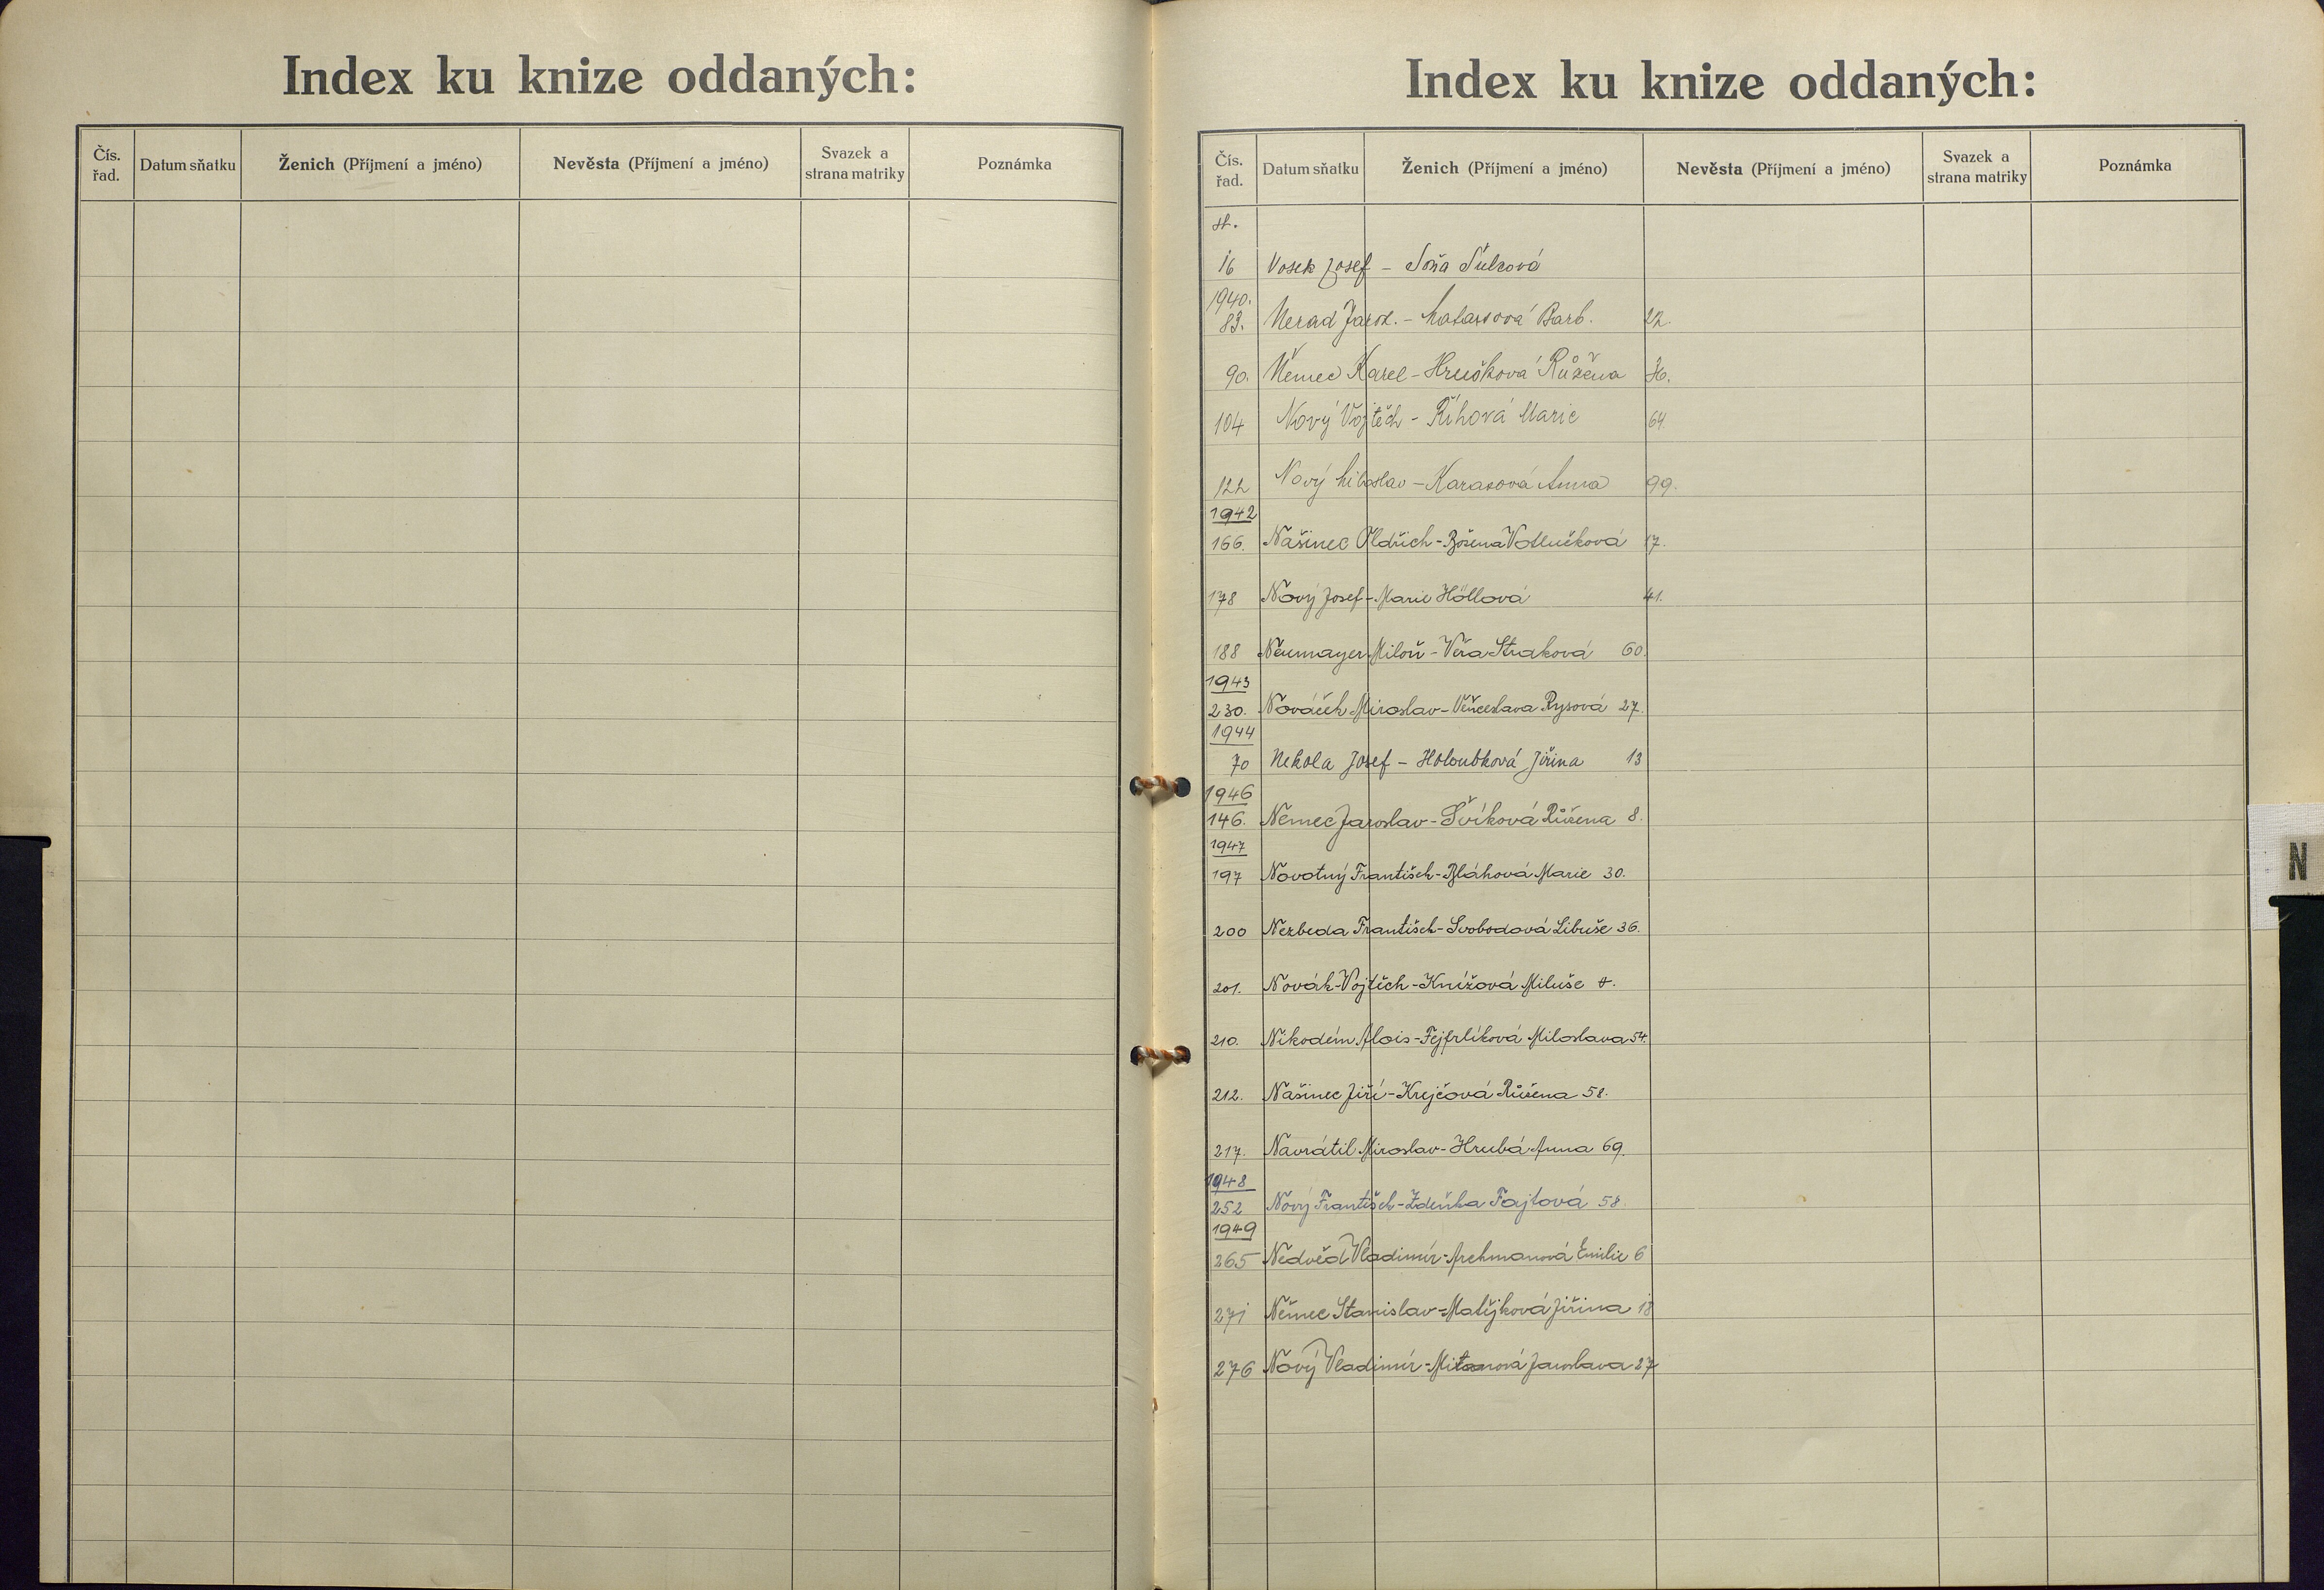 Index ku knize oddaných:
Čís. řad. Datum sňatku Ženich (Příjmení a jméno) Nevěsta (Příjmení a jméno) Svazek a strana matriky Poznámka
Index ku knize oddaných:
Čís. řad. Datum sňatku Ženich (Příjmení a jméno) Nevěsta (Příjmení a jméno) Svazek a strana matriky Poznámka
st.
16 Vosek Josef - Soňa Šulcová
1940.
83. Nerad Jarosl. - Barb. 22.
90. Němec Karel - Hrušková Růžena 36.
104 Nový Vojtěch - Říhová Marie 64
122 Nový Miloslav - Karasová Anna 99.
1942
166. Našinec Oldřich - Božena Votlučková 17.
178 Nový Josef - Marie Höllová 41.
188 Neumayer Miloň - Věra Straková 60.
1943
230. Nováček Miroslav - Věnceslava Rysová 27.
1944
70 Nekola Josef - Holoubková Jiřina 13
1946
146. Němec Jaroslav - Švíková Růžena 8.
1947
197 Novotný František - Bláhová Marie 30.
200 Nezbeda František - Svobodová Libuše 36.
201. Novák Vojtěch - Knížová Miluše
210. Nikodém Alois - Fejfrlíková Miloslava 54.
212. Našinec Jiří - Krejčová Růžena 58.
217. Navrátil Miroslav - Hrubá Anna 69.
1948
252 Nový František - Zdeňka Fajtová 58.
1949
265 Nedvěd Vladimír - Archmanová Emilie 6
271 Němec Stanislav - Matějková Jiřina 18
276 Nový Vladimír - Jaroslava 27
N